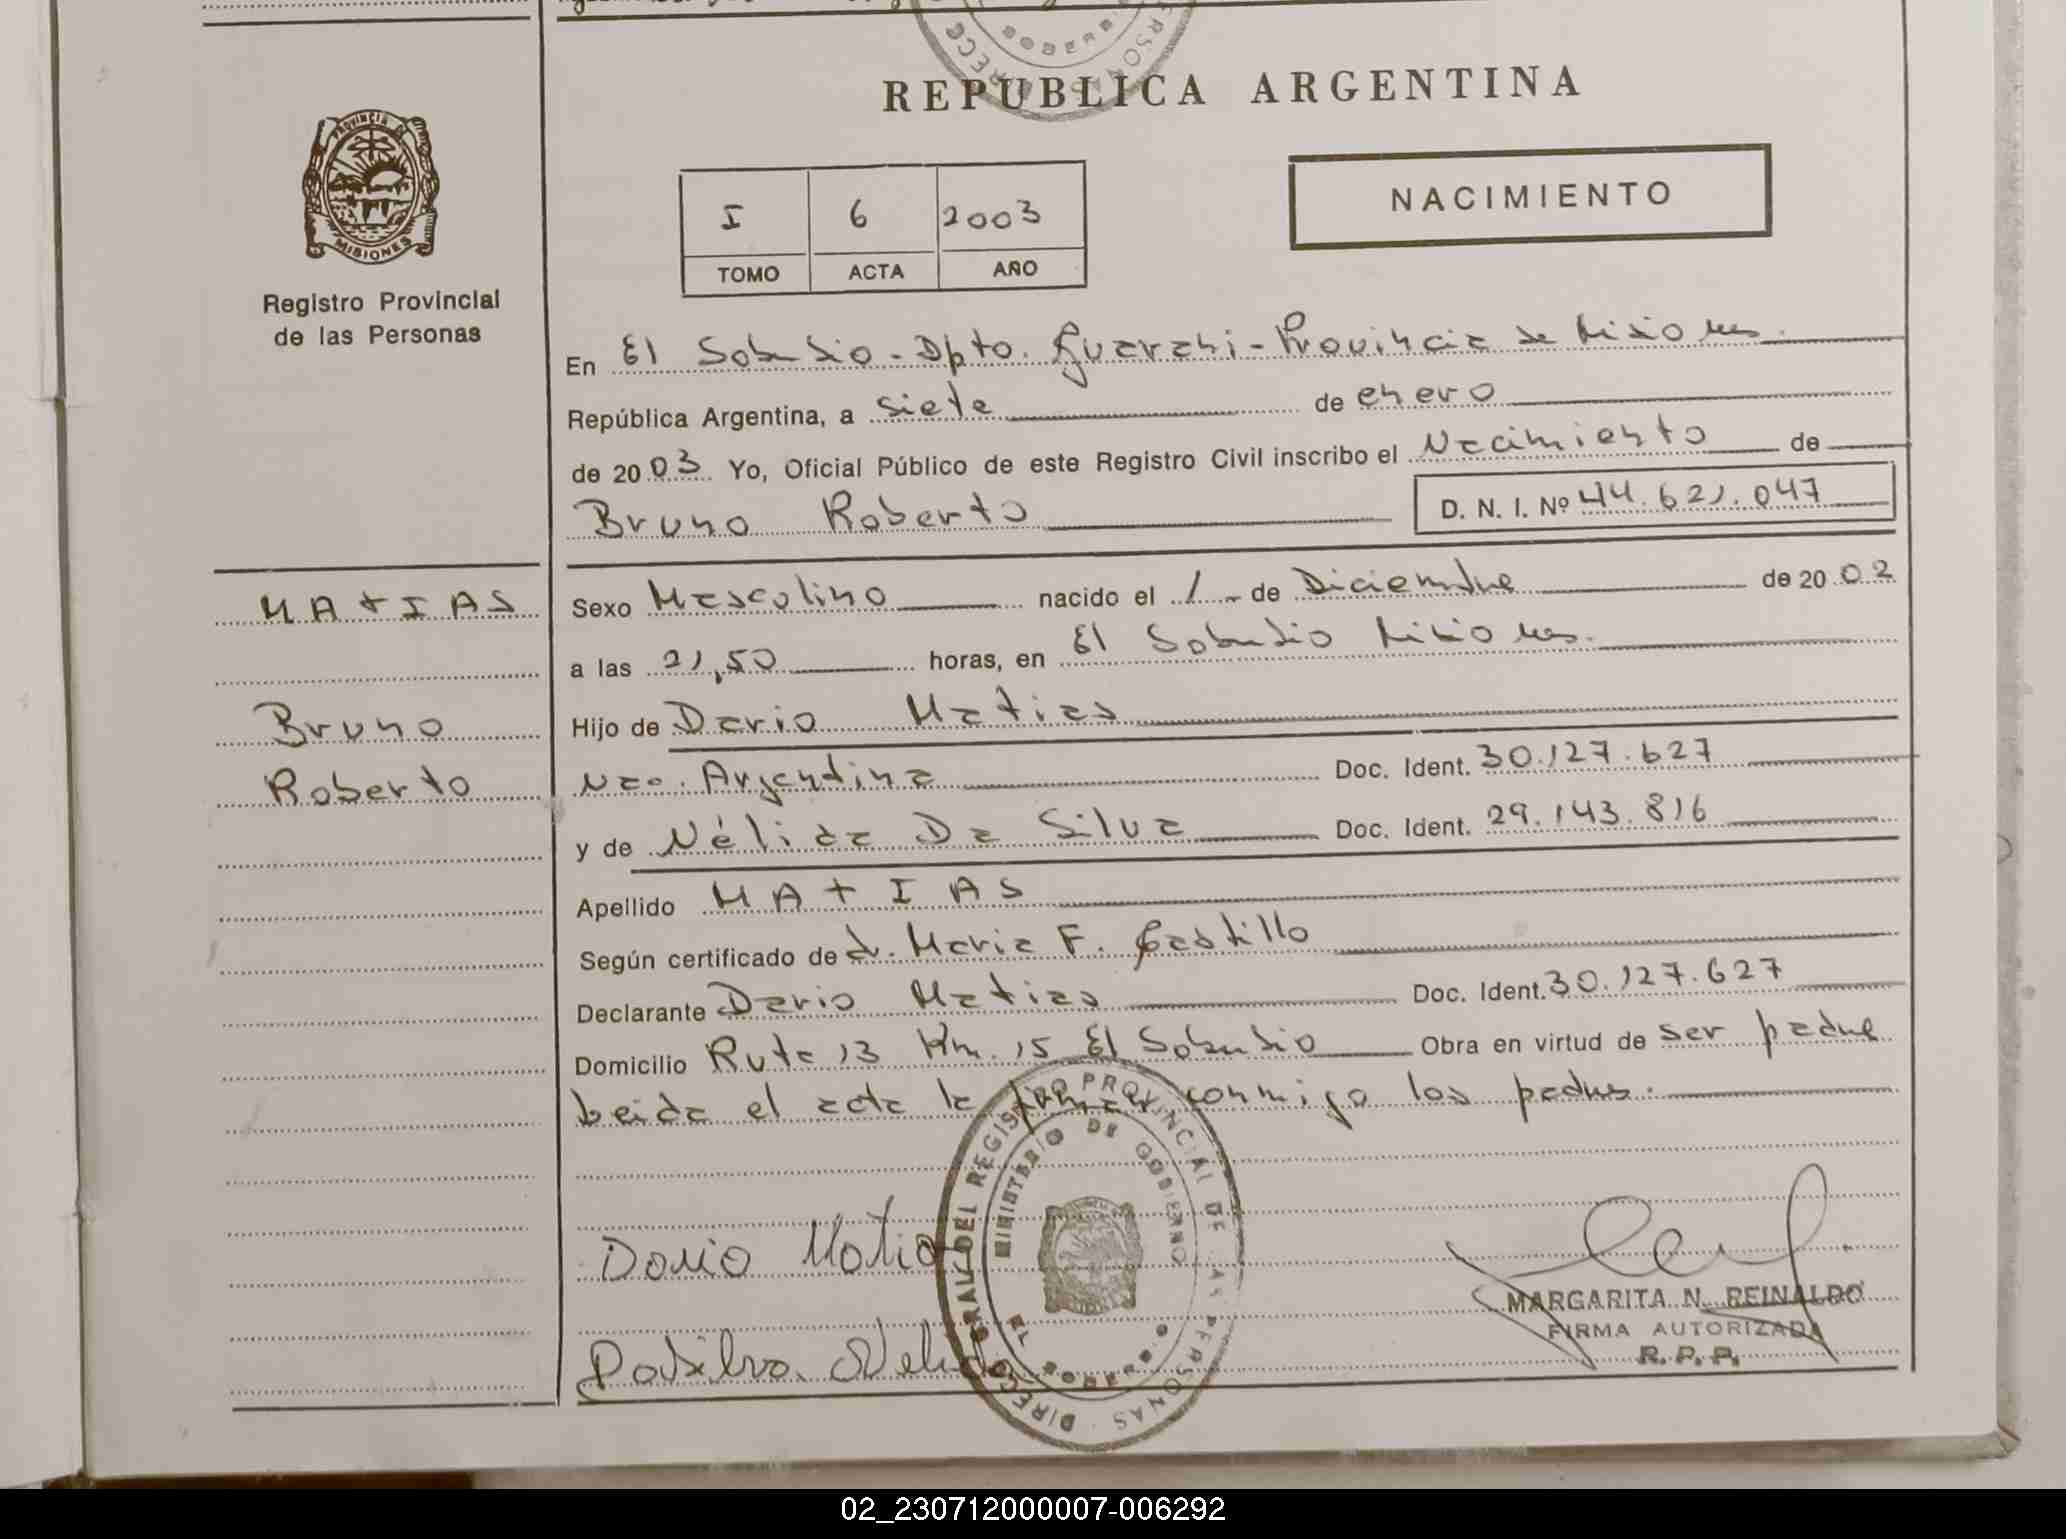 REPUBLICA ARGENTINA
PROVINCIA DE
MISIONES
Registro Provincial
de las Personas
I 6 2003
TOMO ACTA AÑO
NACIMIENTO
En El Soberbio - Dpto. Guarani - Provincia de Misiones.
República Argentina, a siete de enero
de 2003 Yo, Oficial Público de este Registro Civil inscribo el Nacimiento de
Bruno Roberto D. N. I. Nº 44.621.047
MATIAS
Bruno
Roberto
Sexo Masculino nacido el 1 de Diciembre de 2002
a las 21,50 horas, en El Soberbio Misiones.
Hijo de Dario Matias
Nac. Argentina Doc. Ident. 30.127.627
y de Nélida Da Silva Doc. Ident. 29.143.816
Apellido MATIAS
Según certificado de dr. Maria F. Castillo
Declarante Dario Matias Doc. Ident. 30.127.627
Domicilio Ruta 13 Km. 15 El Soberbio Obra en virtud de ser padre
Leida el acta la firman conmigo los padres.
DIRECC GRAL DEL REGISTRO PROVINCIAL DE LAS PERSONAS
MINISTERIO DE GOBIERNO
EL SOBERBIO
Dario Matia
Dasilva Nelida
MARGARITA N. REINALDO
FIRMA AUTORIZADA
R. P. P.
02_230712000007-006292